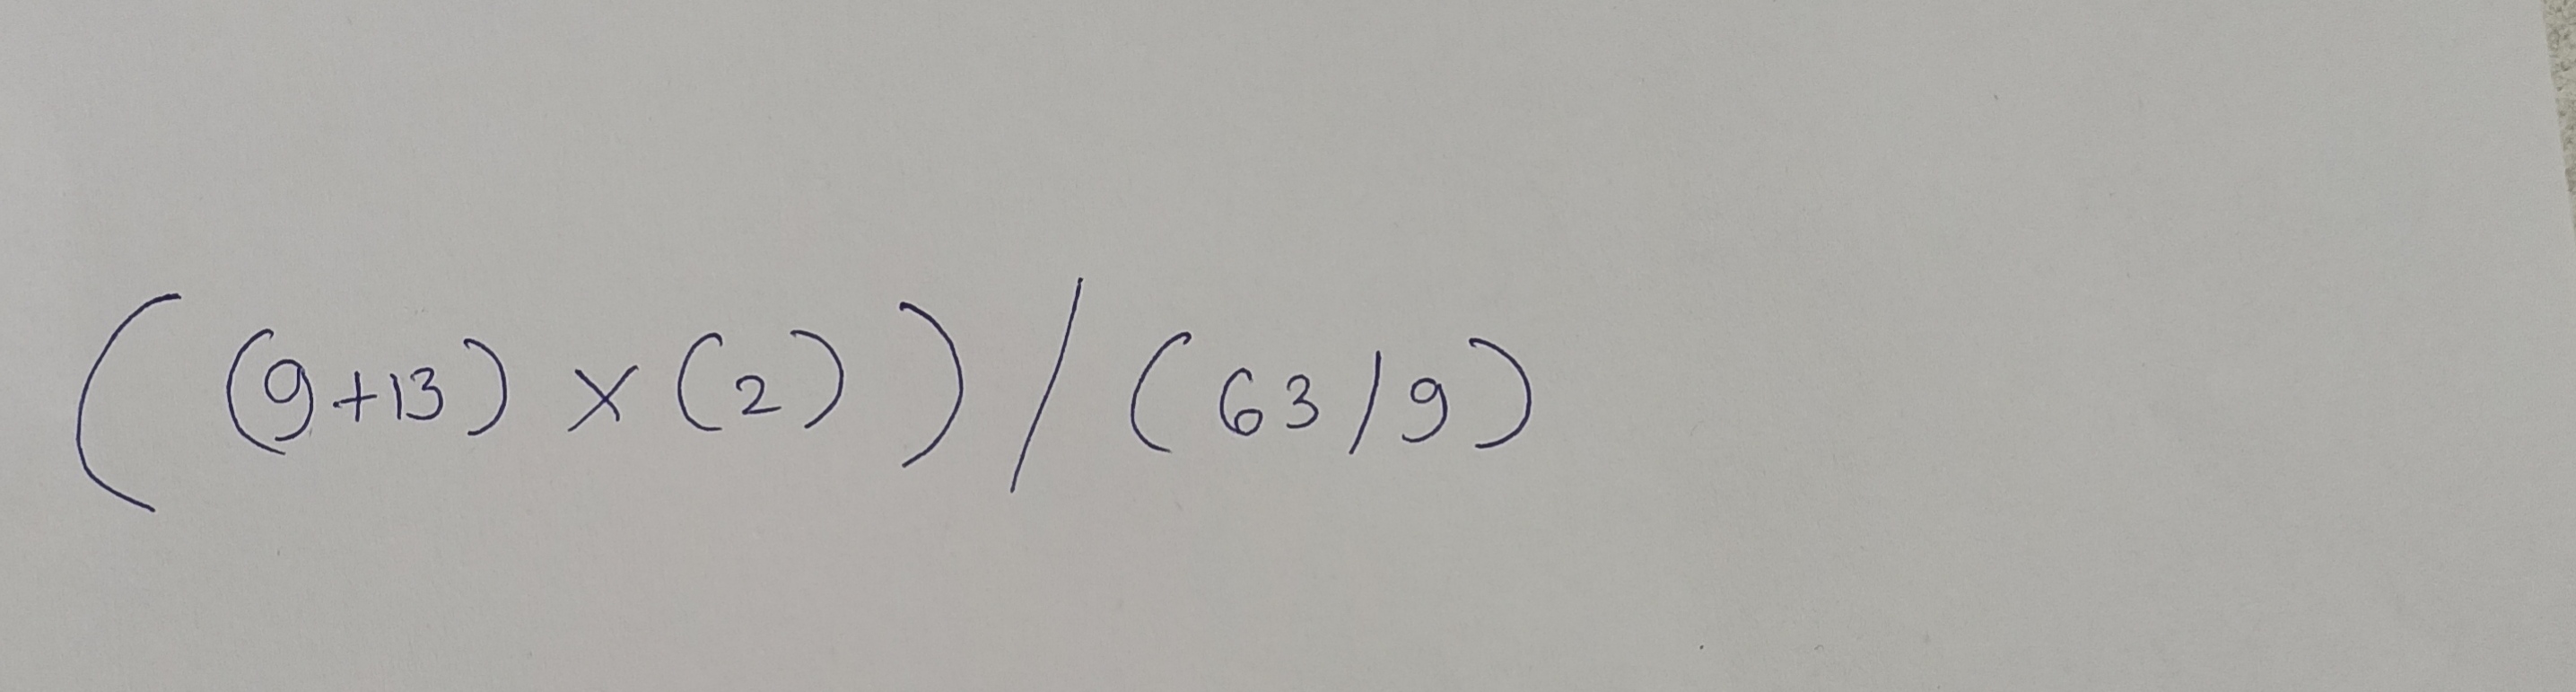 ((9+13) × (2)) / (63/9)